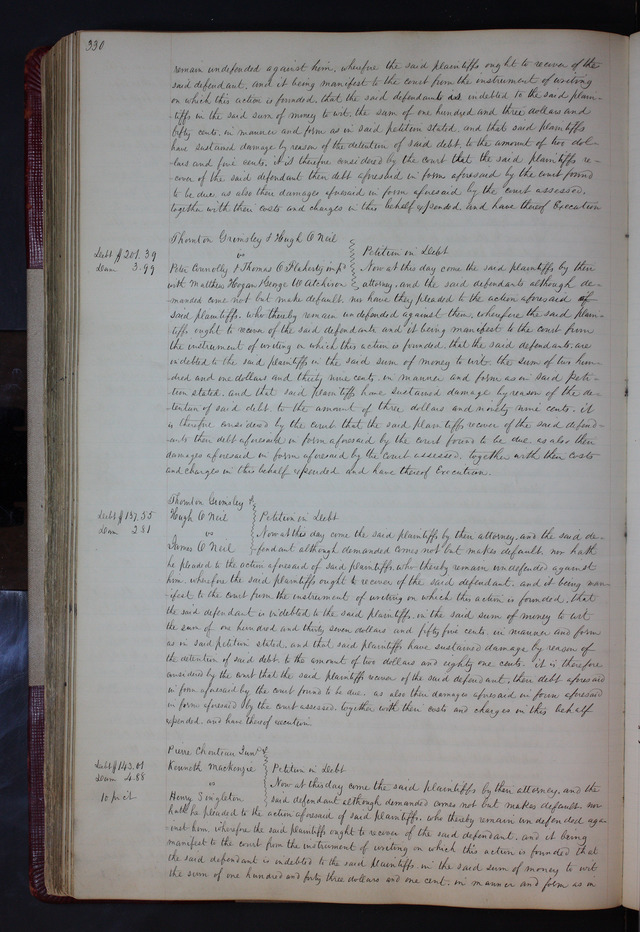 330
remain undefended against him, wherefore the said plaintiffs ought to recover of the
said defendant. and it being manifest to the court from the instrument of writing
on which this action is founded, that the said defendant is indebted to the said plain-
tiffs in the said sum of money to wit, the sum of one hundred and three dollars and
fifty cents, in manner and form as in said petition stated, and that said plaintiffs
have sustained damage by reason of the detention of said debt, to the amount of two dol-
lars and five cents. it is therefore considered by the court that the said plaintiffs re-
cover of the said defendant their debt aforesaid in form aforesaid by the court found
to be due, as also their damages aforesaid in form aforesaid by the court assessed,
together with their costs and charges in this behalf expended and have thereof Execution
Thornton Grimsley & Hugh O'Neil
Debt $201.39 vs Petition in Debt
Dam 3.99 Peter Connolly & Thomas O'Flaherty impd Now at this day come the said plaintiffs by their
with Matthew Hogan George W Atchison attorney, and the said defendants although de-
manded come not but make default, nor have they pleaded to the action aforesaid of
said plaintiffs, who thereby remain undefended against them, wherefore the said plain-
tiffs ought to recover of the said defendants and it being manifest to the court from
the instrument of writing on which this action is founded, that the said defendants are
indebted to the said plaintiffs in the said sum of money to wit the sum of two hun-
dred and one dollars and thirty nine cents, in manner and form as in said peti-
tion stated, and that said plaintiffs have sustained damage by reason of the de-
tention of said debt to the amount of three dollars and ninety nine cents. it
is therefore considered by the court that the said plaintiffs recover of the said defend-
ants their debt aforesaid in form aforesaid by the court found to be due as also their
damages aforesaid in form aforesaid by the court assessed, together with their costs
and charges in this behalf expended and have thereof Execution.
Thornton Grimsley &
Debt $137.55 Hugh O'Neil Petition in Debt
Dam 2.81 vs Now at this day come the said plaintiffs by their attorney, and the said de-
James O'Neil fendant although demanded comes not but makes default, nor hath
he pleaded to the action aforesaid of said plaintiffs, who thereby remain undefended against
him, wherefore the said plaintiffs ought to recover of the said defendant, and it being man-
ifest to the court from the instrument of writing on which this action is founded, that
the said defendant is indebted to the said plaintiffs, in the said sum of money to wit
the sum of one hundred and thirty seven dollars and fifty five cents, in manner and form
as in said petition stated, and that said plaintiffs have sustained damage by reason of
the detention of said debt, to the amount of two dollars and eighty one cents. it is therefore
considered by the court that the said plaintiffs recover of the said defendant, their debt aforesaid
in form aforesaid by the court found to be due, as also their damages aforesaid in form aforesaid
in form aforesaid by the court assessed, together with their costs and charges in this behalf
expended, and have thereof execution.
Pierre Chouteau Junr &
Debt $143.01 Kenneth Mackenzie Petition in Debt
Dam 4.88 vs Now at this day come the said plaintiffs by their attorney, and the
10 pr ct Henry Singleton said defendant although demanded comes not but makes default, nor
hath he pleaded to the action aforesaid of said plaintiffs, who thereby remain undefended aga-
inst him, wherefore the said plaintiff ought to recover of the said defendant, and it being
manifest to the court from the instrument of writing on which this action is founded that
the said defendant is indebted to the said plaintiffs, in the said sum of money to wit
the sum of one hundred and forty three dollars and one cent, in manner and form as in